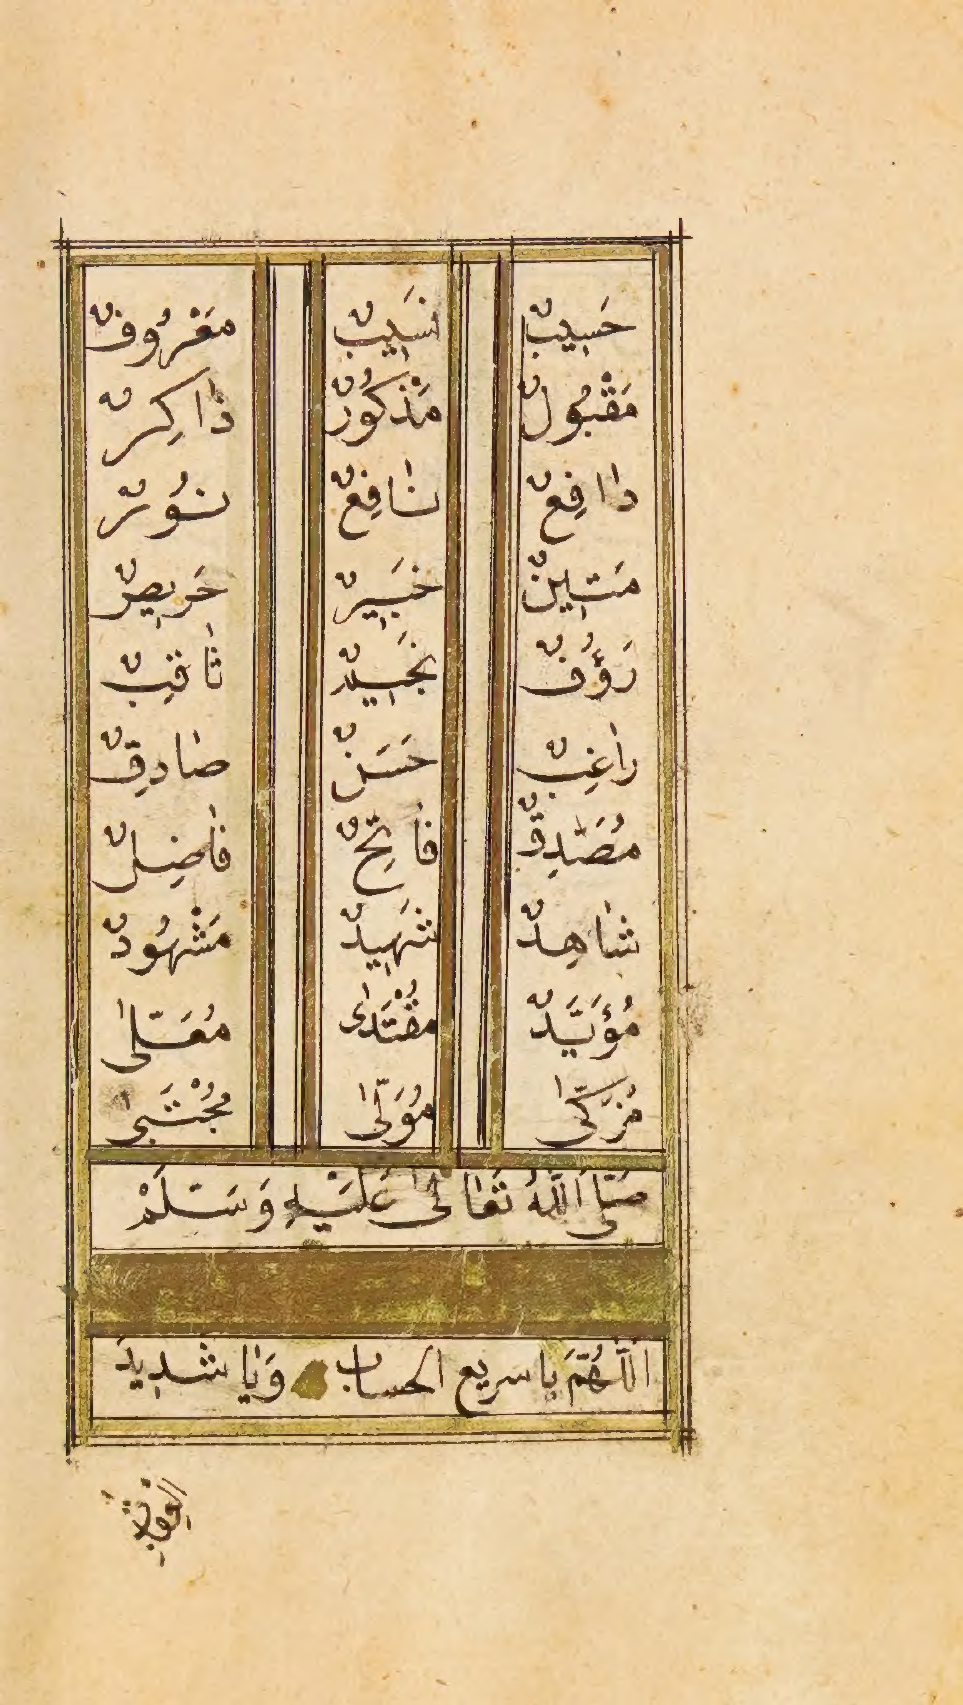 حَسِيبٌ نَسِيبٌ مَعْرُوفٌ
مَقْبُولٌ مَذْكُورٌ ذَاكِرٌ
دَافِعٌ نَافِعٌ نُورٌ
مَتِينٌ خَبِيرٌ حَرِيصٌ
رَؤُفٌ نَجِيدٌ ثَاقِبٌ
رَاغِبٌ حَسَنٌ صَادِقٌ
مُصَدِّقٌ فَاتِحٌ فَاضِلٌ
شَاهِدٌ شَهِيدٌ مَشْهُودٌ
مُؤَيَّدٌ مُقْتَدَى مُعَلَّى
مُزَكَّى مُوَلَّى مُجْتَبَى
صَلَّى اللَّهُ تَعَالَى عَلَيْهِ وَسَلَّمْ
اللَّهُمَّ يا سريع الحساب وَيَا شَدِيدَ
العِقَابِ